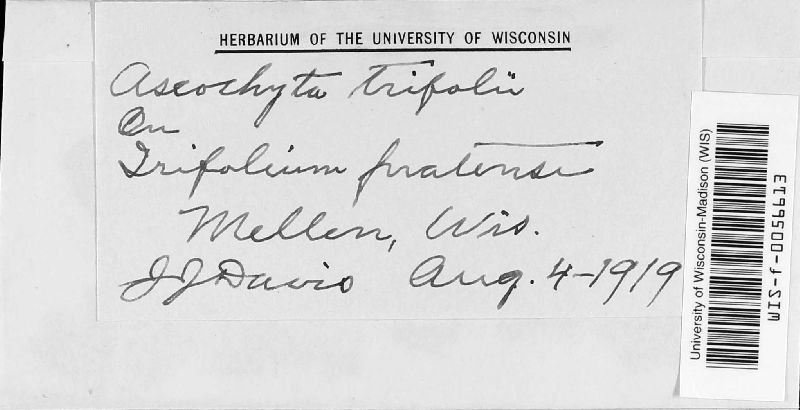 HERBARIUM OF THE UNIVERSITY OF WISCONSIN
Ascochyta trifolii
On
Trifolium pratense
Mellen, Wis.
J J Davis Aug. 4-1919
University of Wisconsin-Madison (WIS)
WIS-f-0056613